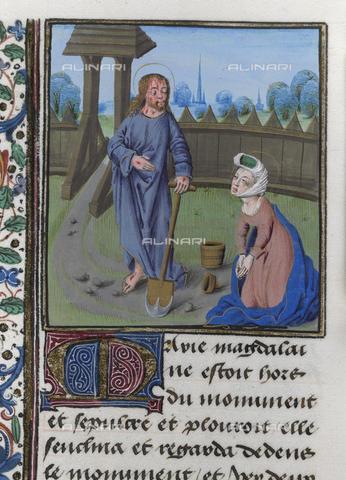 ALINARI
ALINARI
ALINARI
Marie magdalai
ne estoit hors
du monument
et sepulcre et plouroit elle
senclina et regarda dedens
le monument / et